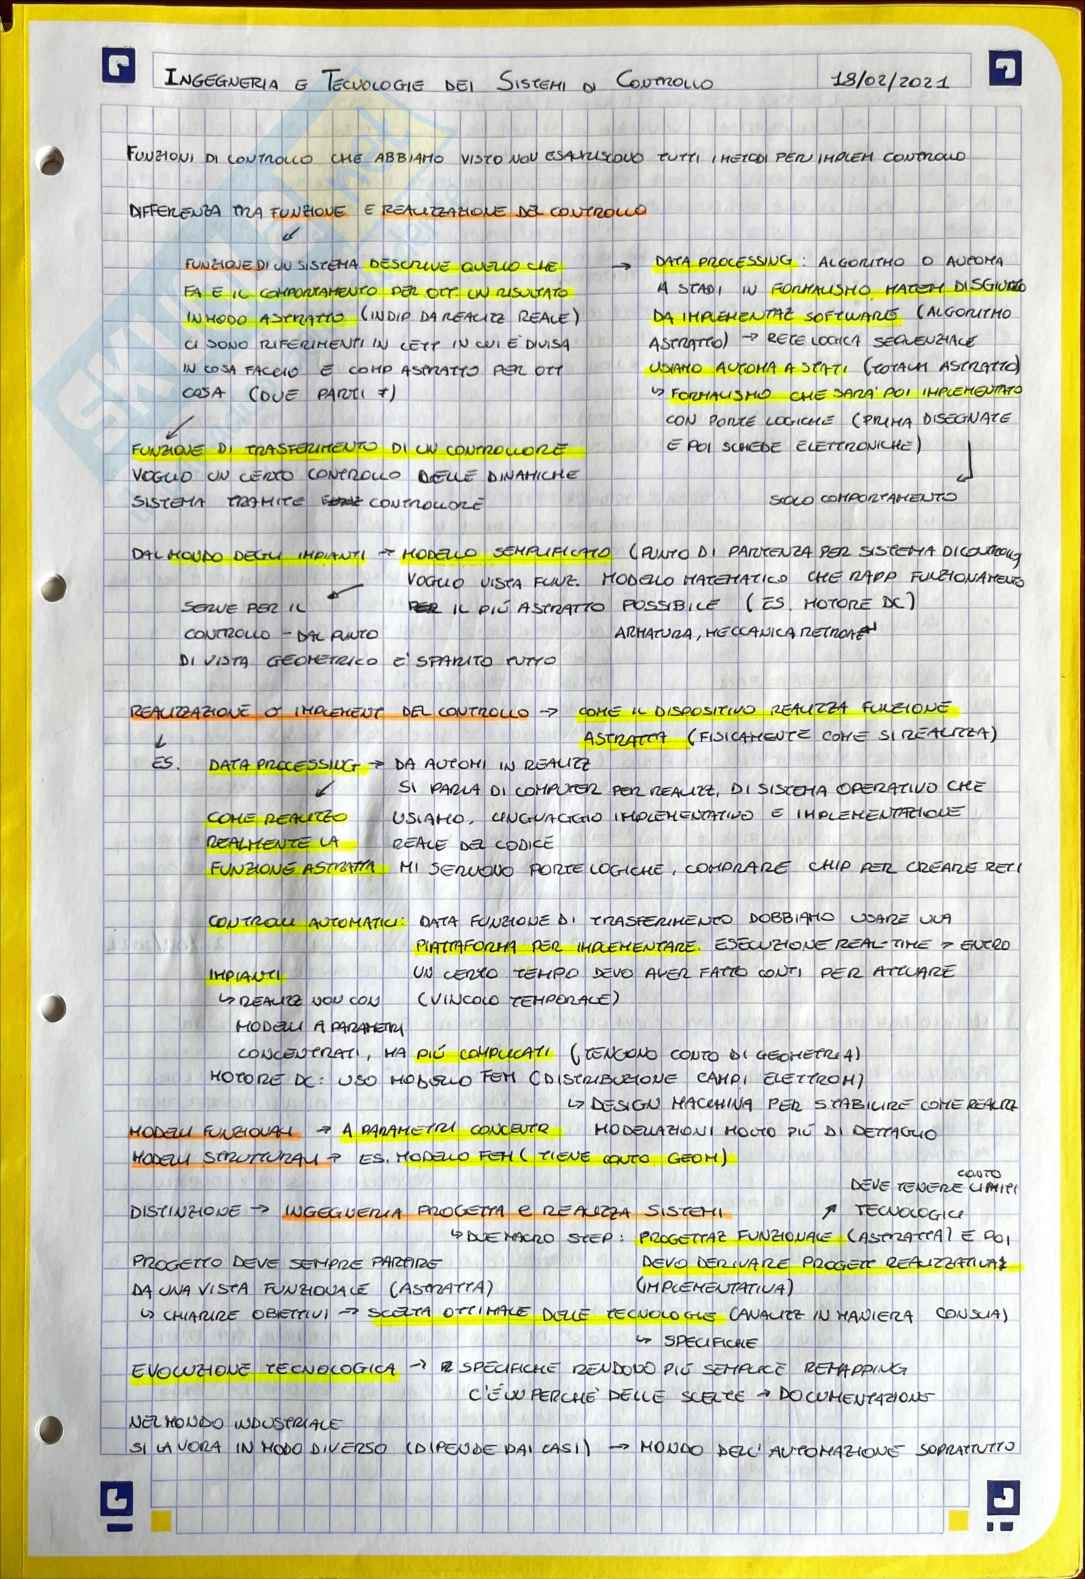 INGEGNERIA E TECNOLOGIE DEI SISTEMI DI CONTROLLO 18/02/2021
FUNZIONI DI CONTROLLO CHE ABBIAMO VISTO NON ESAURISCONO TUTTI I METODI PER IMPLEM CONTROLLO
DIFFERENZA TRA FUNZIONE E REALIZZAZIONE DEL CONTROLLO
↙
FUNZIONE DI UN SISTEMA DESCRIVE QUELLO CHE
FA E IL COMPORTAMENTO PER OTT. UN RISULTATO
IN MODO ASTRATTO (INDIP DA REALIZZ REALE)
CI SONO RIFERIMENTI IN LETT IN CUI E' DIVISA
IN COSA FACCIO E COMP ASTRATTO PER OTT
COSA (DUE PARTI ≠)
→ DATA PROCESSING : ALGORITMO O AUTOMA
A STADI IN FORMALISMO MATEM DISGIUNTO
DA IMPLEMENTAZ SOFTWARE (ALGORITMO
ASTRATTO) → RETE LOGICA SEQUENZIALE
USIAMO AUTOMA A STATI (TOTALM ASTRATTO)
↳ FORMALISMO CHE SARA' POI IMPLEMENTATO
CON PORTE LOGICHE (PRIMA DISEGNATE
E POI SCHEDE ELETTRONICHE)
SOLO COMPORTAMENTO
FUNZIONE DI TRASFERIMENTO DI UN CONTROLLORE
VOGLIO UN CERTO CONTROLLO DELLE DINAMICHE
SISTEMA TRAMITE CONTROLLORE
DAL MONDO DEGLI IMPIANTI → MODELLO SEMPLIFICATO (PUNTO DI PARTENZA PER SISTEMA DI CONTROLLO)
VOGLIO VISTA FUNZ. MODELLO MATEMATICO CHE RAPP FUNZIONAMENTO
IL PIÚ ASTRATTO POSSIBILE (ES. MOTORE DC)
ARMATURA, MECCANICA RETROAZ
SERVE PER IL
CONTROLLO - DAL PUNTO
DI VISTA GEOMETRICO E' SPARITO TUTTO
REALIZZAZIONE O IMPLEMENT DEL CONTROLLO → COME IL DISPOSITIVO REALIZZA FUNZIONE
ASTRATTA (FISICAMENTE COME SI REALIZZA)
↓
ES. DATA PROCESSING → DA AUTOMI IN REALIZZ
SI PARLA DI COMPUTER PER REALIZZ, DI SISTEMA OPERATIVO CHE
COME REALIZZO USIAMO, LINGUAGGIO IMPLEMENTATIVO E IMPLEMENTAZIONE
REALMENTE LA REALE DEL CODICE
FUNZIONE ASTRATTA MI SERVONO PORTE LOGICHE, COMPRARE CHIP PER CREARE RETI
CONTROLLI AUTOMATICI: DATA FUNZIONE DI TRASFERIMENTO DOBBIAMO USARE UNA
PIATTAFORMA PER IMPLEMENTARE. ESECUZIONE REAL-TIME → ENTRO
IMPIANTI UN CERTO TEMPO DEVO AVER FATTO CONTI PER ATTUARE
↳ REALIZZ NON CON (VINCOLO TEMPORALE)
MODELLI A PARAMETRI
CONCENTRATI, MA PIÚ COMPLICATI (TENGONO CONTO DI GEOMETRIA)
MOTORE DC: USO MODELLO FEM (DISTRIBUZIONE CAMPI ELETTROM)
↳ DESIGN MACCHINA PER STABILIRE COME REALIZZ
MODELLI FUNZIONALI → A PARAMETRI CONCENTR MODELLAZIONI MOLTO PIÚ DI DETTAGLIO
MODELLI STRUTTURALI → ES. MODELLO FEM (TIENE CONTO GEOM)
CONTO
DEVE TENERE LIMITI
DISTINZIONE → INGEGNERIA PROGETTA E REALIZZA SISTEMI ↗ TECNOLOGICI
↳ DUE MACRO STEP : PROGETTAZ FUNZIONALE (ASTRATTA) E POI
PROGETTO DEVE SEMPRE PARTIRE DEVO DERIVARE PROGETT REALIZZATIVA
DA UNA VISTA FUNZIONALE (ASTRATTA) (IMPLEMENTATIVA)
↳ CHIARIRE OBIETTIVI → SCELTA OTTIMALE DELLE TECNOLOGIE (ANALIZZ IN MANIERA CONSUA)
↳ SPECIFICHE
EVOLUZIONE TECNOLOGICA → SPECIFICHE RENDONO PIÚ SEMPLICE REMAPPING
C'É UN PERCHE' DELLE SCELTE → DOCUMENTAZIONE
NEL MONDO INDUSTRIALE
SI LAVORA IN MODO DIVERSO (DIPENDE DAI CASI) → MONDO DELL'AUTOMAZIONE SOPRATTUTTO